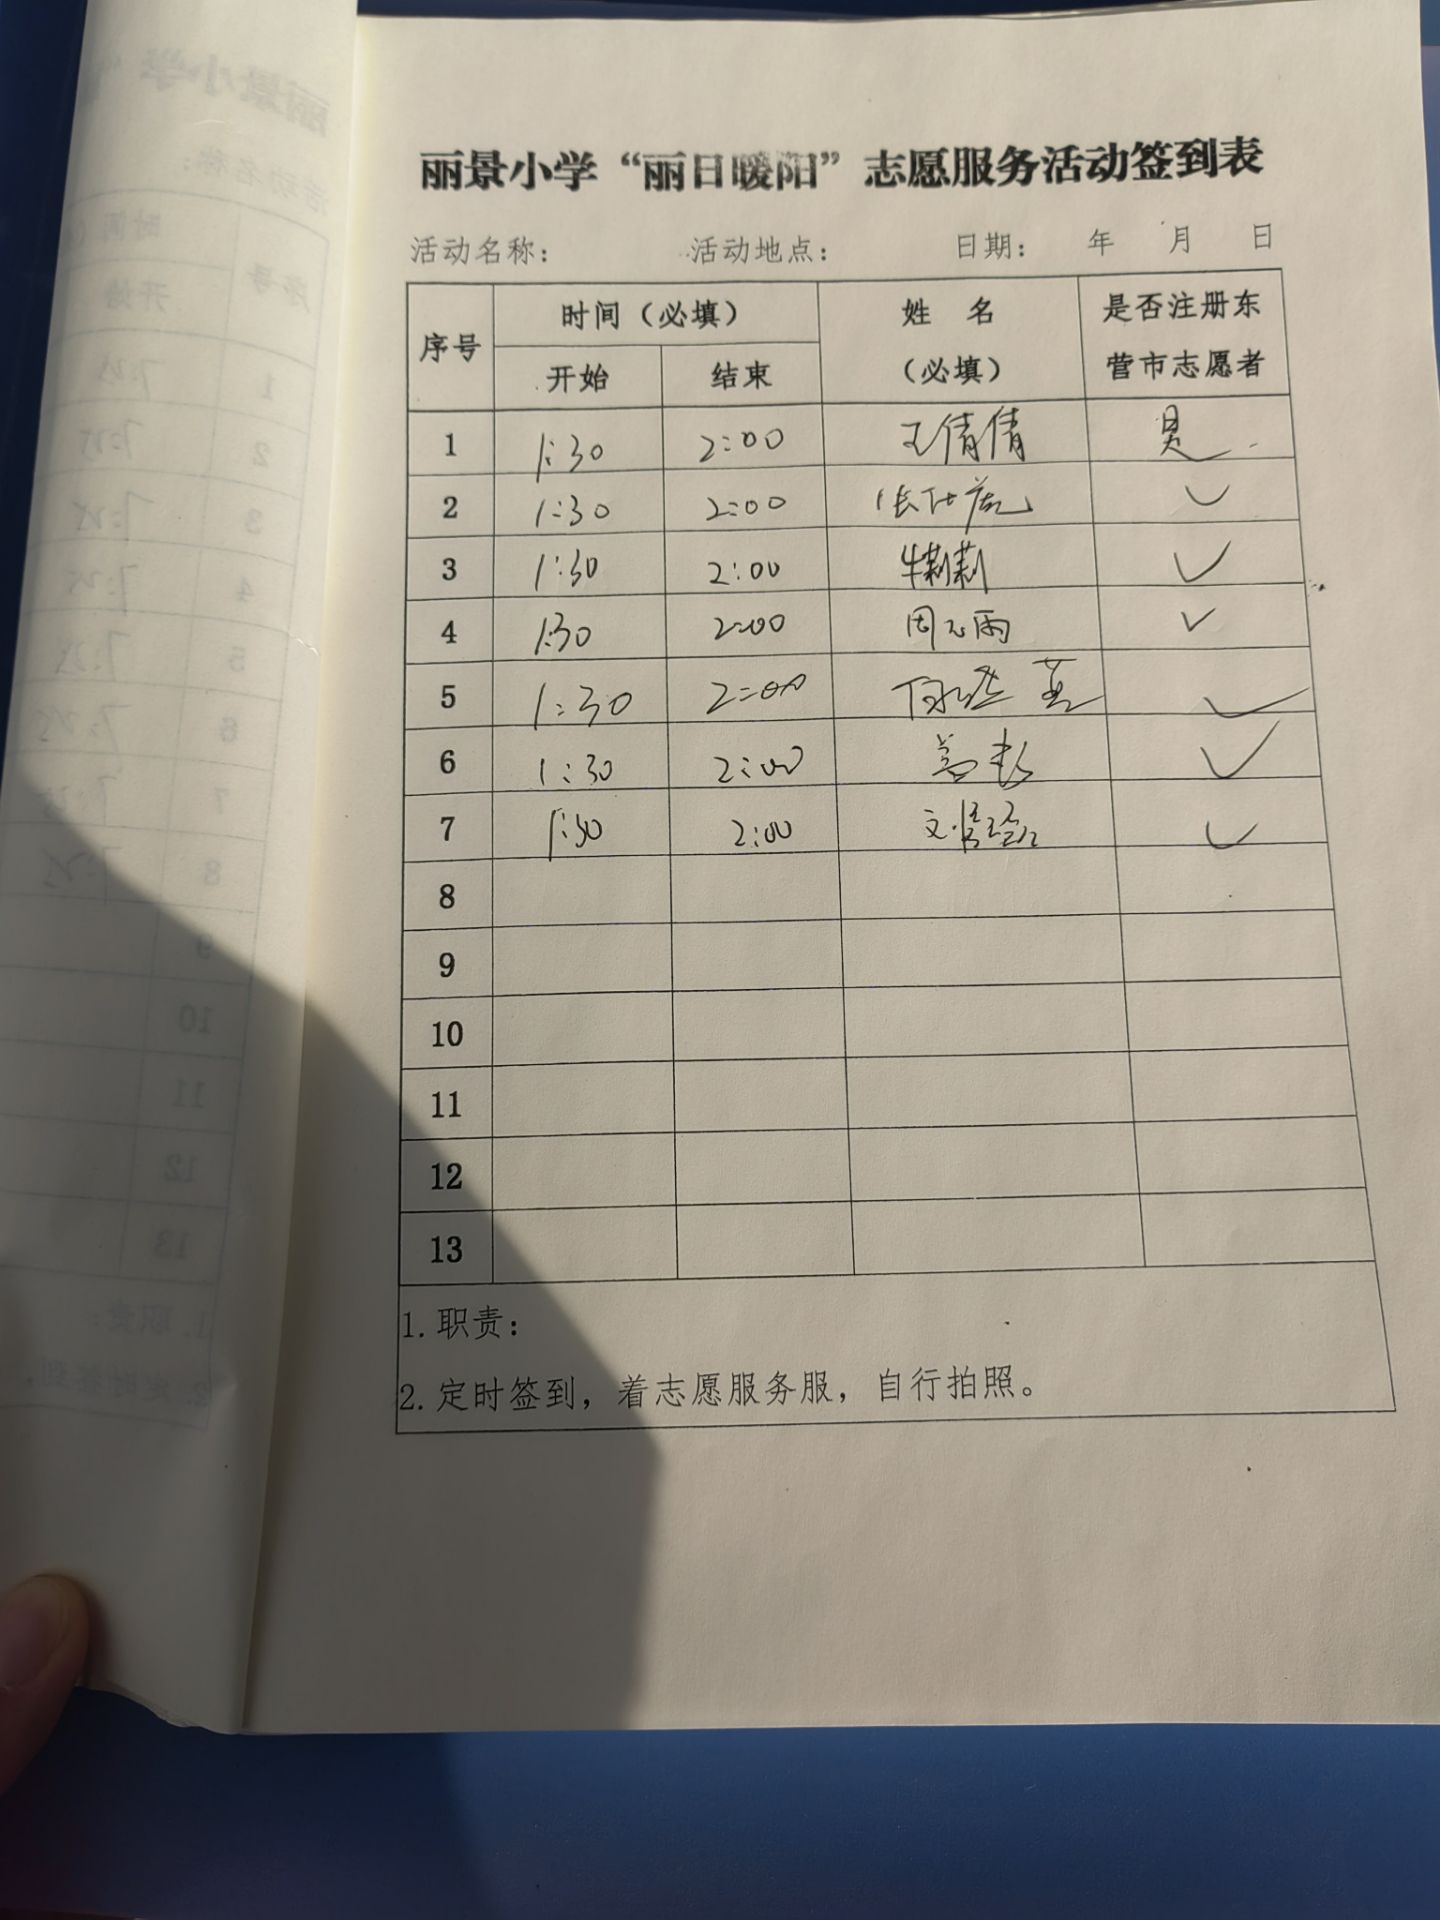 丽景小学“丽日暖阳”志愿服务活动签到表
活动名称： 活动地点： 日期： 年 月 日
序号 时间（必填） 姓 名（必填） 是否注册东营市志愿者
开始 结束
1 1:30 2:00 王倩倩 是
2 1:30 2:00 ✓
3 1:30 2:00 牛莉莉 ✓
4 1:30 2:00 周 雨 ✓
5 1:30 2:00 ✓
6 1:30 2:00 ✓
7 1:30 2:00 ✓
8
9
10
11
12
13
1. 职责：
2. 定时签到，着志愿服务服，自行拍照。